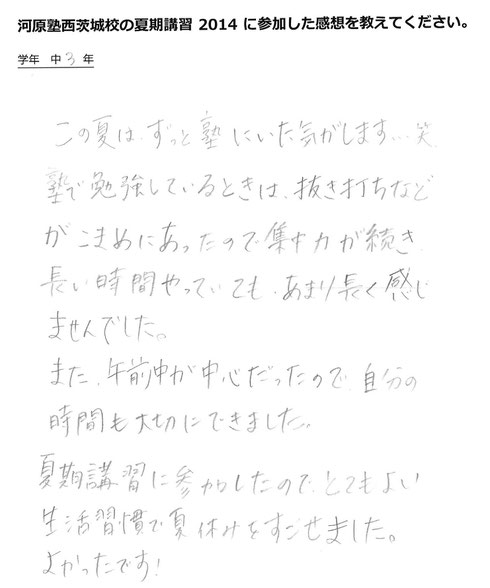 河原塾西茨城校の夏期講習 2014 に参加した感想を教えてください。
学年 中 3 年
この夏は、ずっと塾にいた気がします…笑
塾で勉強しているときは、抜き打ちなど
がこまめにあったので集中力が続き、
長い時間やっていても、あまり長く感じ
ませんでした。
また、午前中が中心だったので、自分の
時間も大切にできました。
夏期講習に参加したので、とてもよい
生活習慣で夏休みをすごせました。
よかったです!